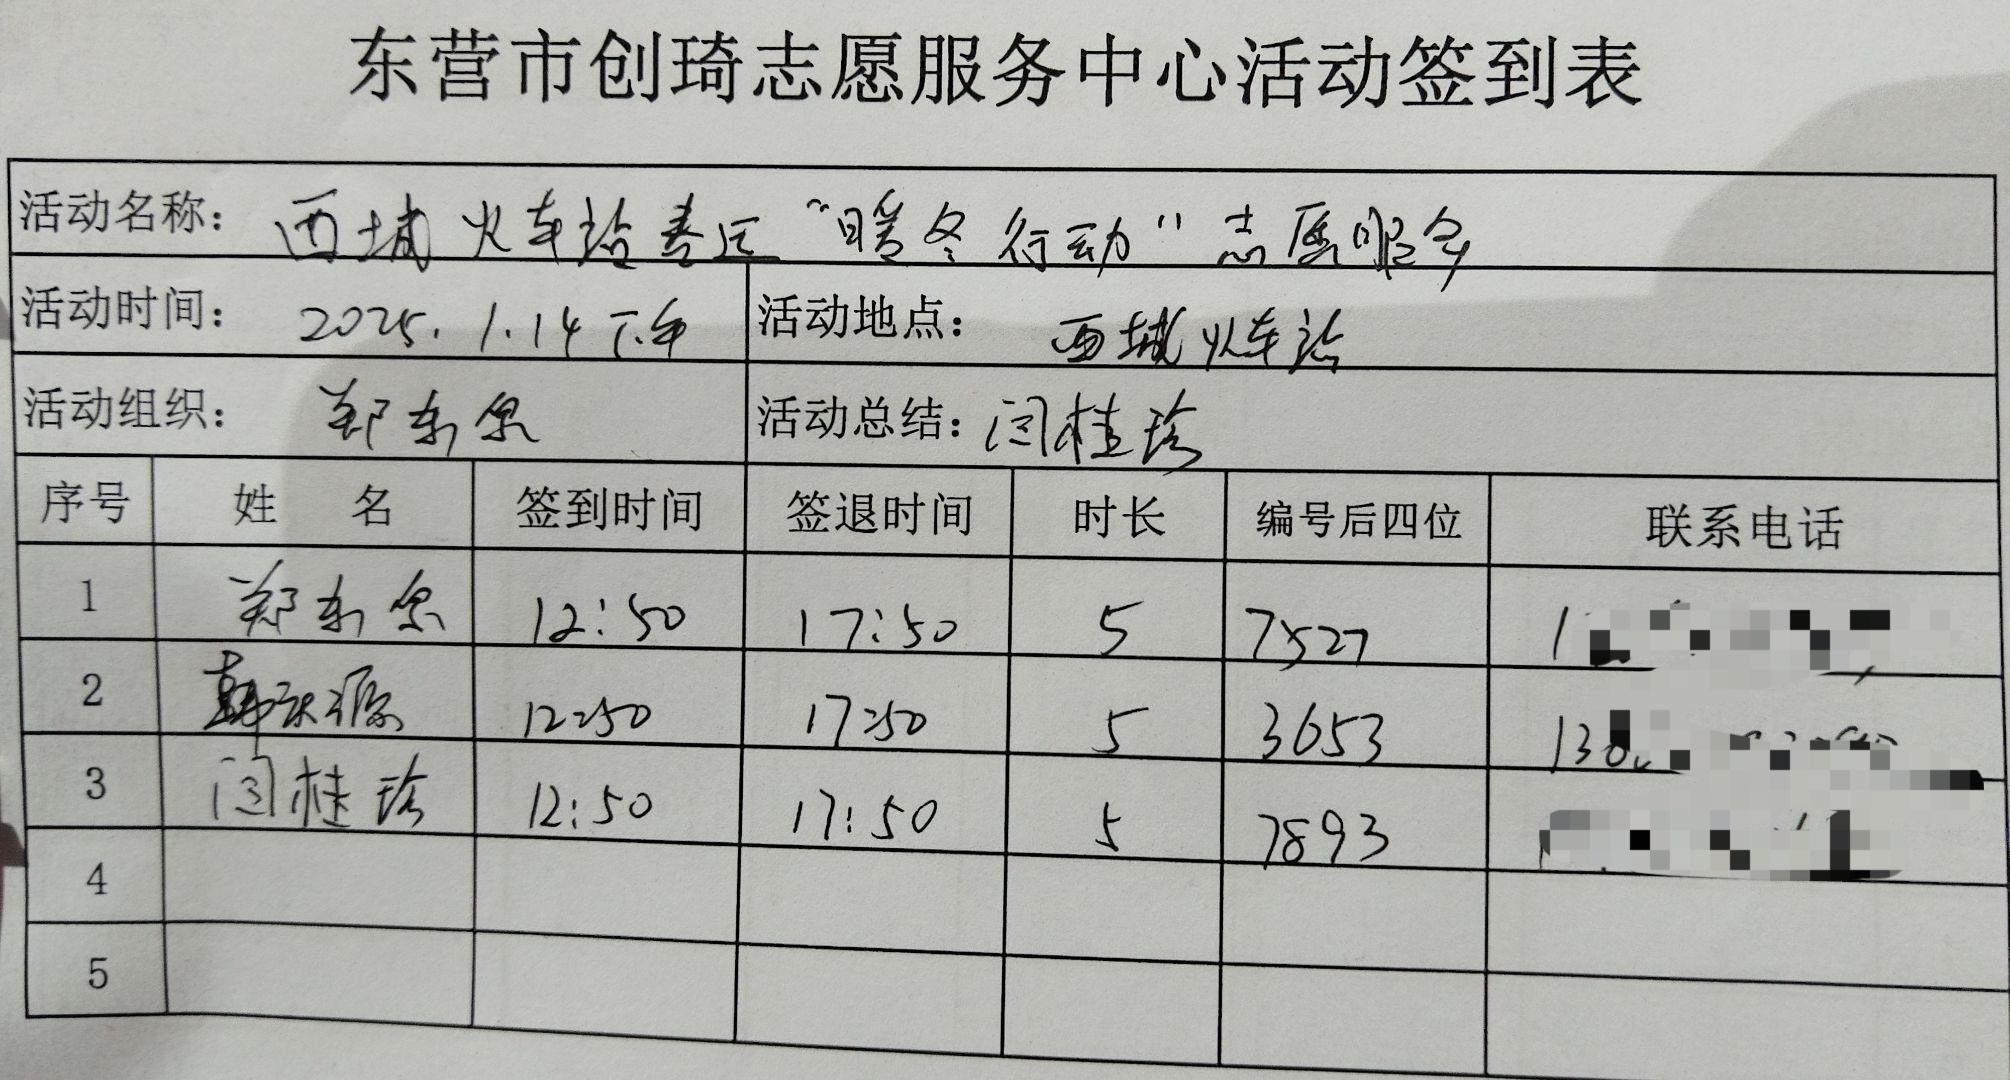 东营市创琦志愿服务中心活动签到表
活动名称： 西城火车站春运“暖冬行动”志愿服务
活动时间： 2025.1.14下午 活动地点： 西城火车站
活动组织： 郑东 活动总结： 闫桂珍
序号 姓 名 签到时间 签退时间 时长 编号后四位 联系电话
1 郑东 12:50 17:50 5 7527 1
2 韩 源 12:50 17:50 5 3653 130
3 闫桂珍 12:50 17:50 5 7893
4
5